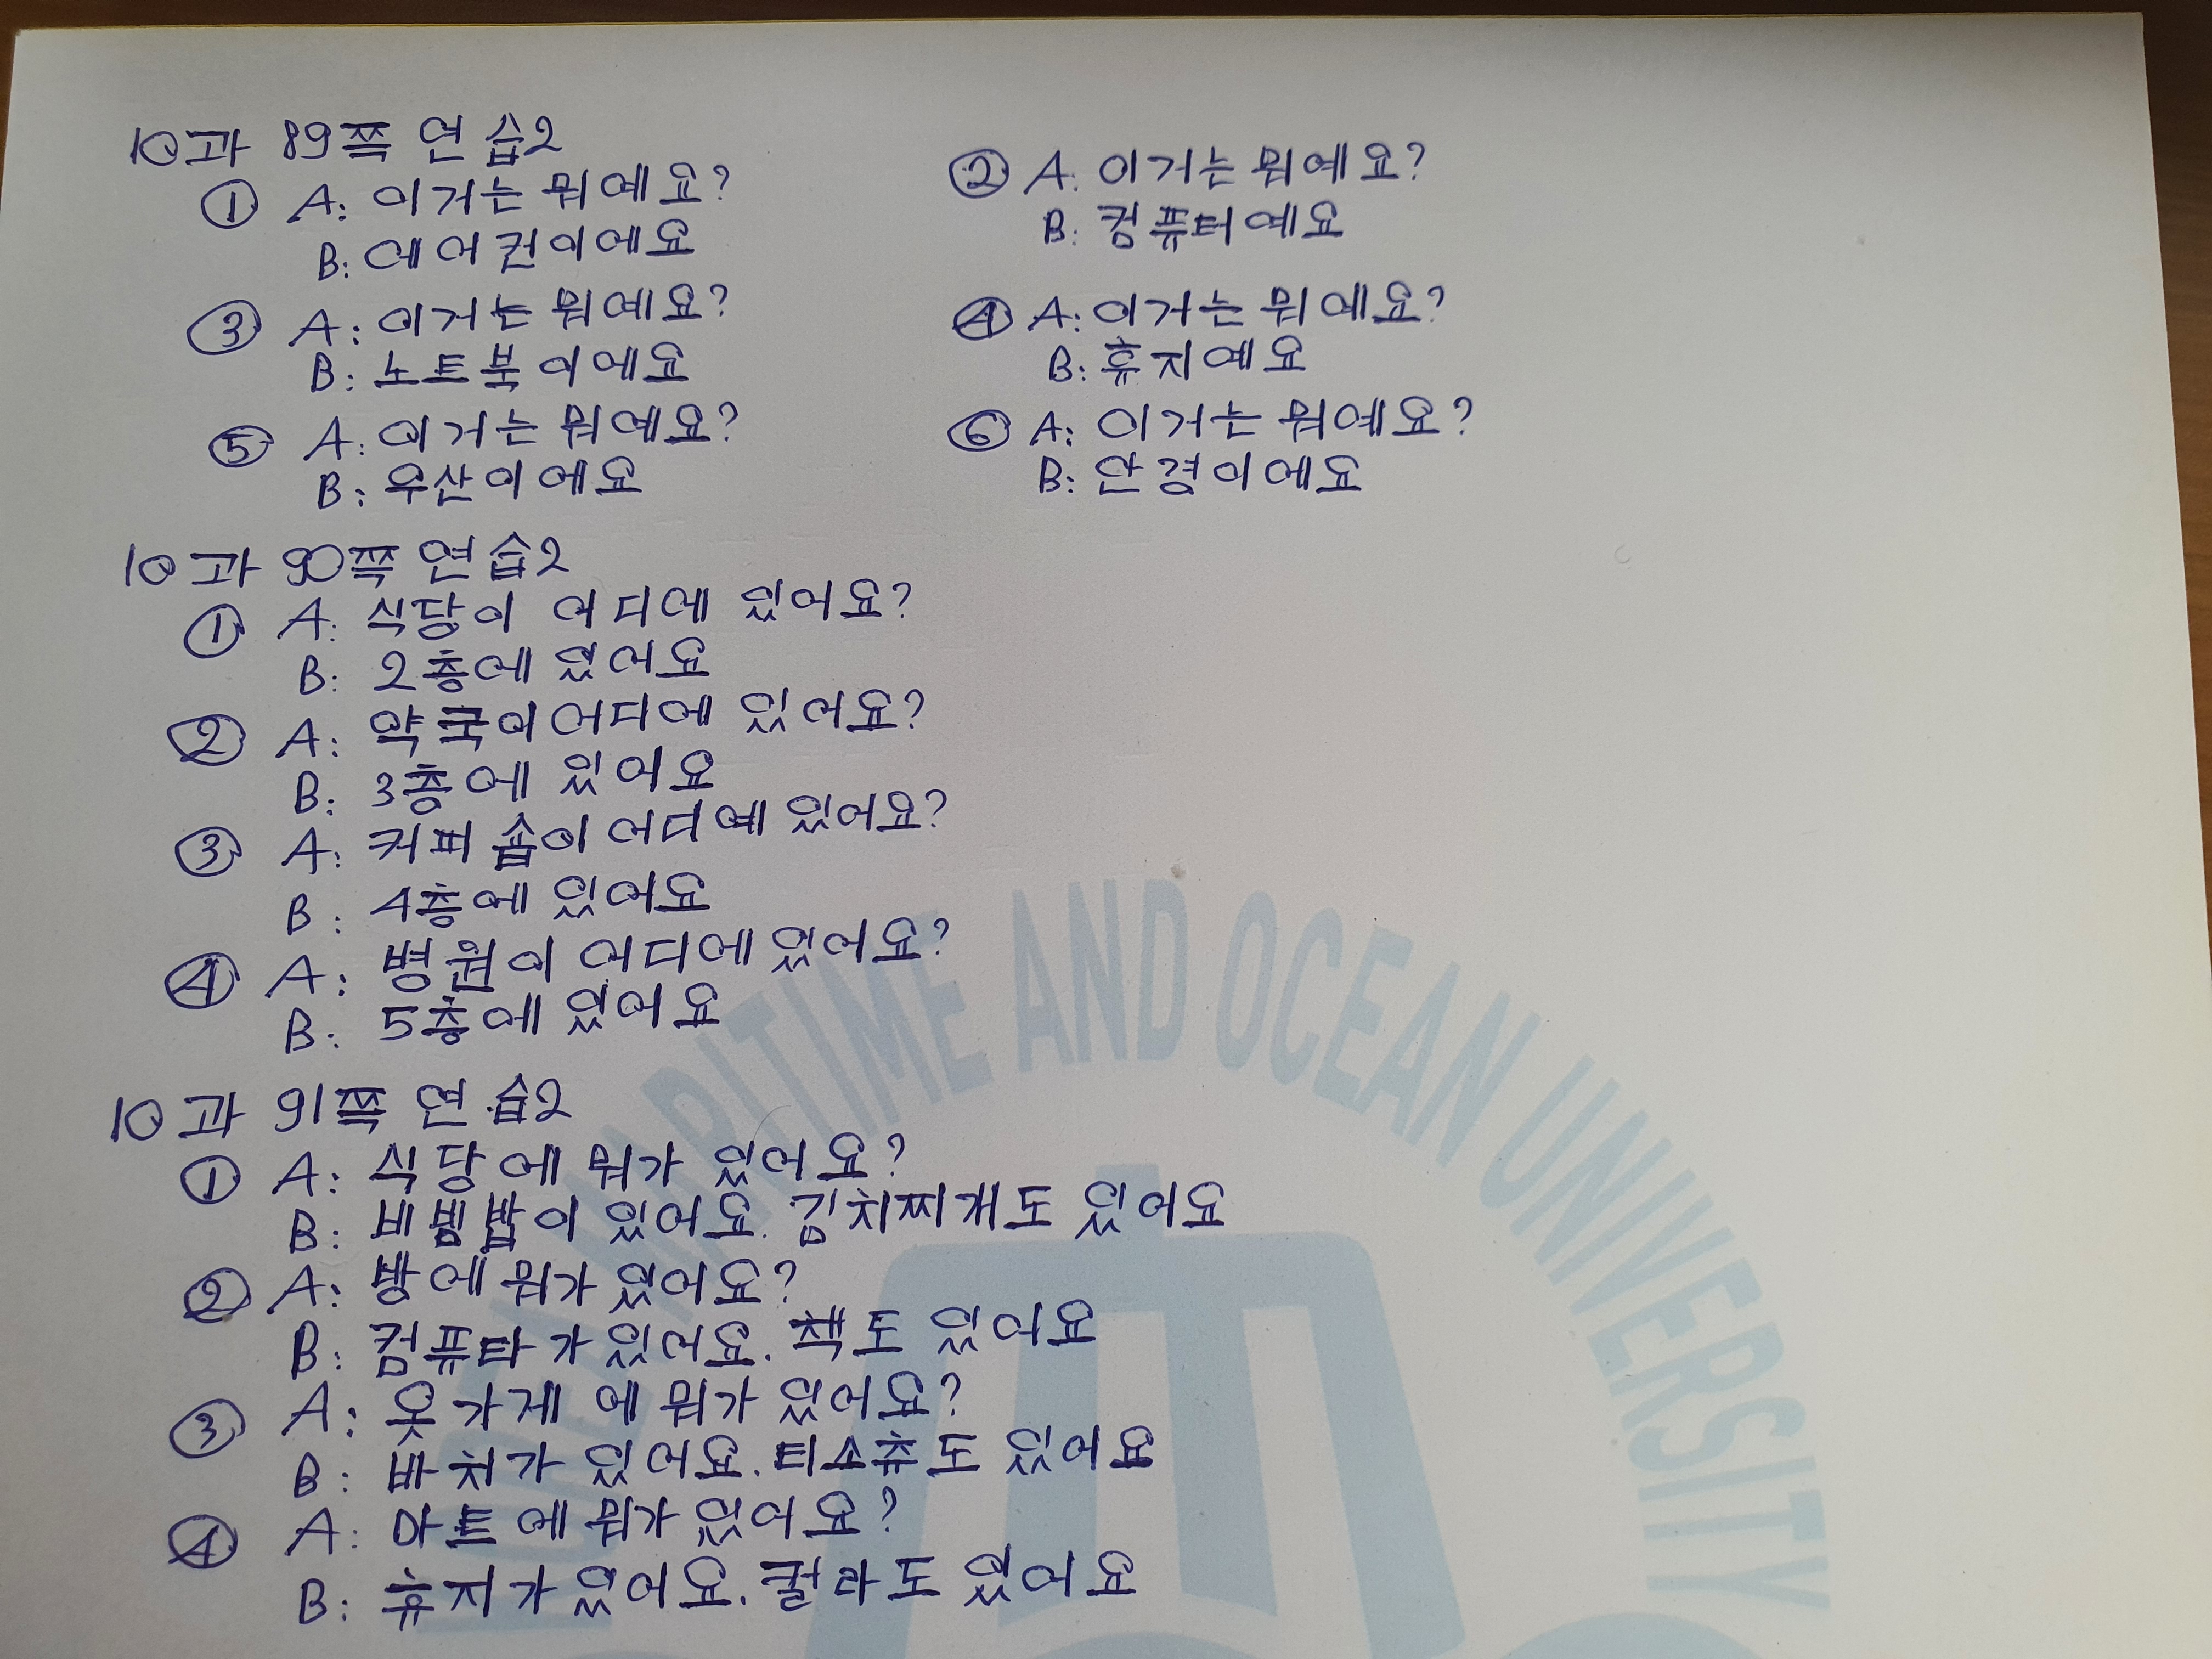 10과 89쪽 연습2
① A: 이거는 뭐예요? ② A: 이거는 뭐예요?
B: 에어컨이에요 B: 컴퓨터예요
③ A: 이거는 뭐예요? ④ A: 이거는 뭐예요?
B: 노트북이에요 B: 휴지예요
⑤ A: 이거는 뭐예요? ⑥ A: 이거는 뭐예요?
B: 우산이에요 B: 안경이에요
10과 90쪽 연습2
① A: 식당이 어디에 있어요?
B: 2층에 있어요
② A: 약국이 어디에 있어요?
B: 3층에 있어요
③ A: 커피숍이 어디에 있어요?
B: 4층에 있어요
④ A: 병원이 어디에 있어요?
B: 5층에 있어요
10과 91쪽 연습2
① A: 식당에 뭐가 있어요?
B: 비빔밥이 있어요. 김치찌개도 있어요
② A: 방에 뭐가 있어요?
B: 컴퓨타가 있어요. 책도 있어요
③ A: 옷가게에 뭐가 있어요?
B: 있어요. 있어요
④ A: 마트에 뭐가 있어요?
B: 휴지가 있어요. 콜라도 있어요
MARITIME AND OCEAN UNIVERSITY